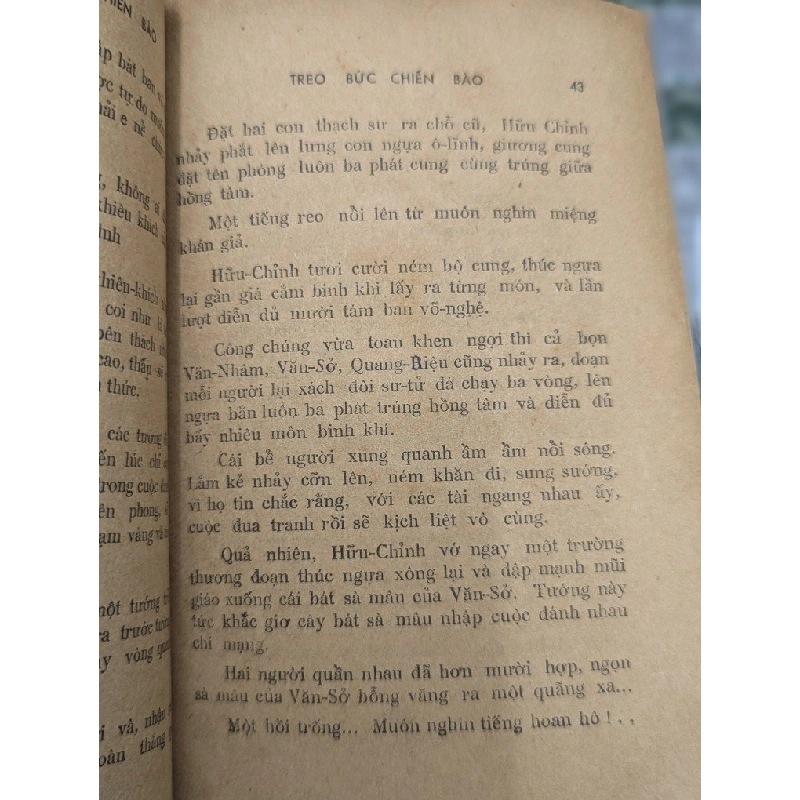 HIẾN BÀO
TREO BỨC CHIẾN BÀO 43
Đặt hai con thạch sư ra chỗ cũ, Hữu Chỉnh
nhảy phắt lên lưng con ngựa ô-lĩnh, giương cung
đặt tên phóng luôn ba phát cung cùng trúng giữa
hồng tâm.
Một tiếng reo nổi lên từ muôn nghìn miệng
khán giả.
Hữu-Chỉnh tươi cười ném bộ cung, thúc ngựa
lại gần giá cắm binh khí lấy ra từng món, và lần
lượt diễn đủ mười tám ban võ-nghệ.
Công chúng vừa toan khen ngợi thì cả bọn
Văn-Nhậm, Văn-Sở, Quang-Diệu cũng nhảy ra, đoạn
mỗi người lại xách đôi sư-tử đá chạy ba vòng, lên
ngựa bắn luôn ba phát trúng hồng tâm và diễn đủ
bấy nhiêu môn binh khí.
Cái bể người xung quanh ầm ầm nổi sóng.
Lắm kẻ nhảy cỡn lên, ném khăn đi, sung sướng,
vì họ tin chắc rằng, với các tài ngang nhau ấy,
cuộc đua tranh rồi sẽ kịch liệt vô cùng.
Quả nhiên, Hữu-Chỉnh vớ ngay một trường
thương đoạn thúc ngựa xông lại và dập mạnh mũi
giáo xuống cái bát sà mâu của Văn-Sở. Tướng này
tức khắc giơ cây bát sà mâu nhập cuộc đánh nhau
chí mạng.
Hai người quần nhau đã hơn mười hợp, ngọn
sà mâu của Văn-Sở bỗng văng ra một quãng xa...
Một hồi trống... Muôn nghìn tiếng hoan hô !..